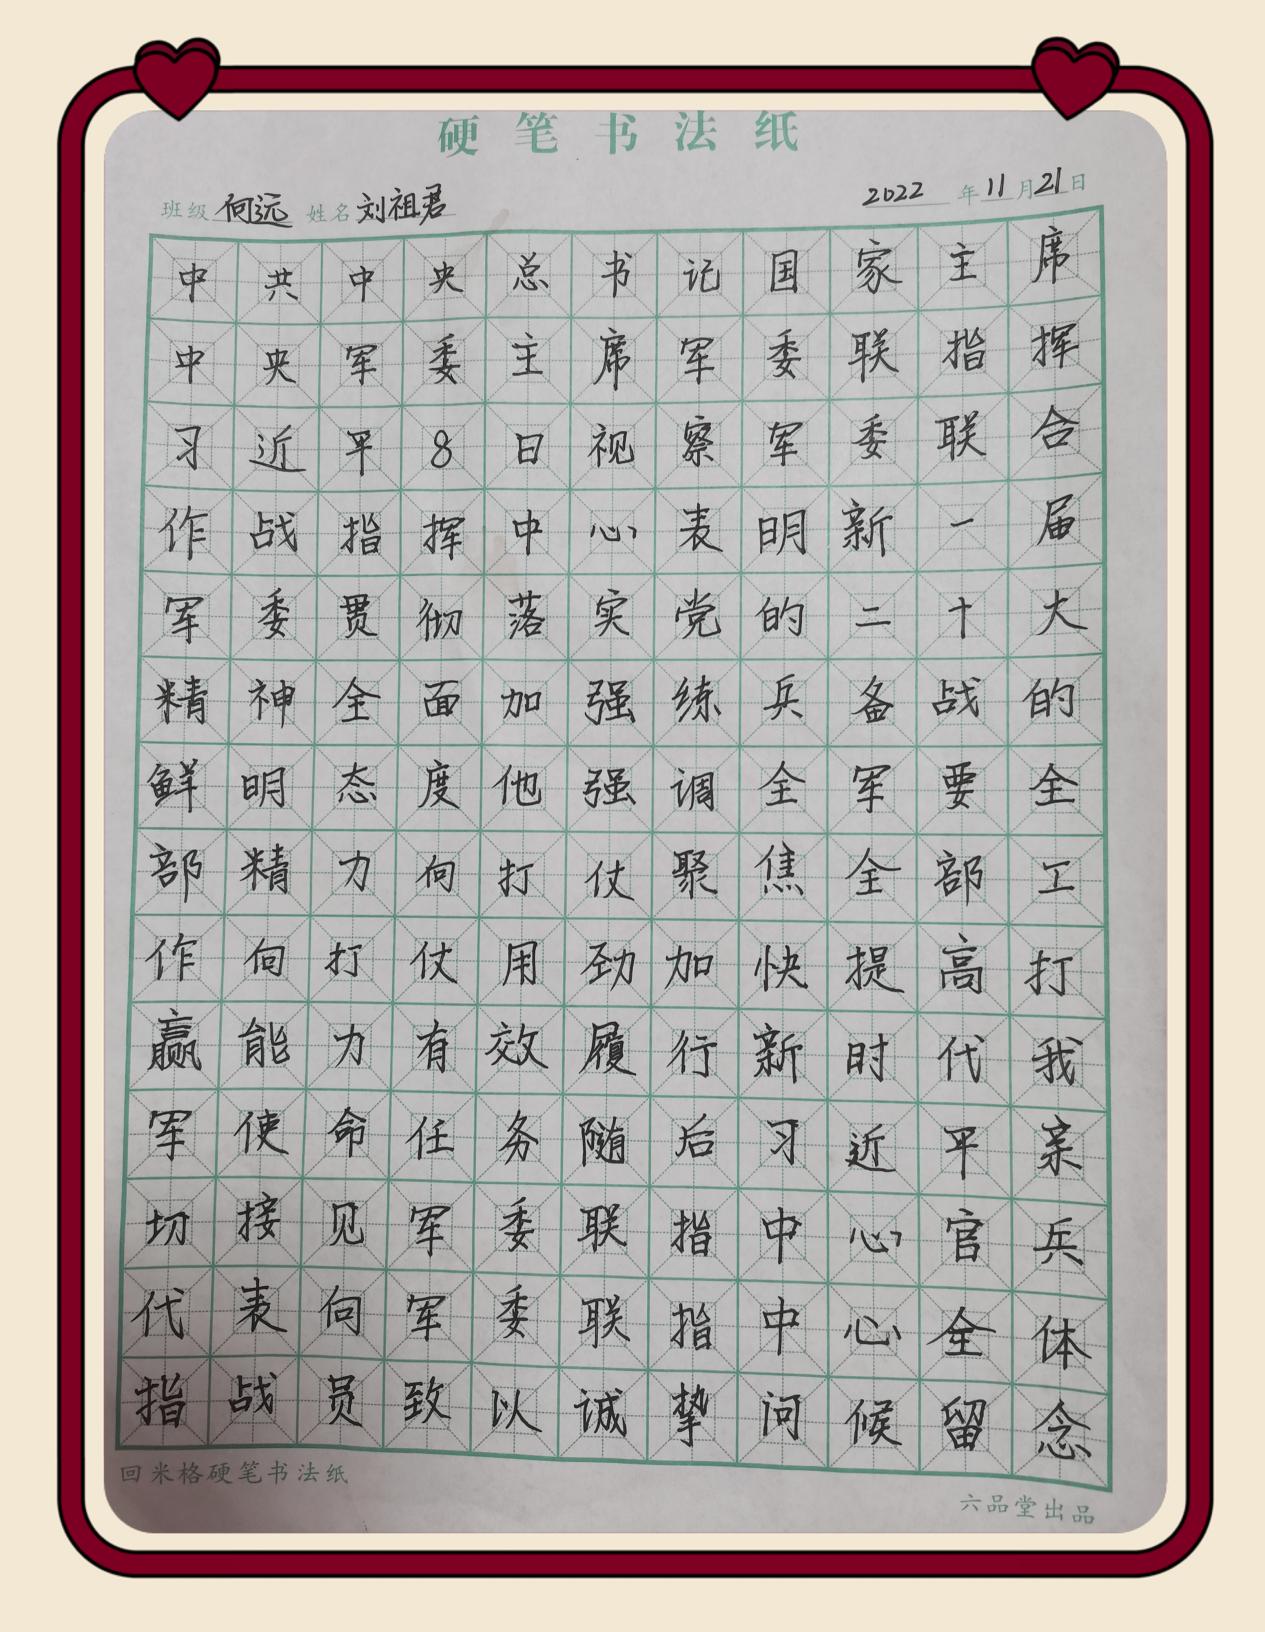 硬笔书法纸
班级 何远 姓名 刘祖君 2022年11月21日
中共中央总书记国家主席
中央军委主席军委联指挥
习近平8日视察军委联合
作战指挥中心表明新一届
军委贯彻落实党的二十大
精神全面加强练兵备战的
鲜明态度他强调全军要全
部精力向打仗聚焦全部工
作向打仗用劲加快提高打
赢能力有效履行新时代我
军使命任务随后习近平亲
切接见军委联指中心官兵
代表向军委联指中心全体
指战员致以诚挚问候留念
回米格硬笔书法纸
六品堂出品